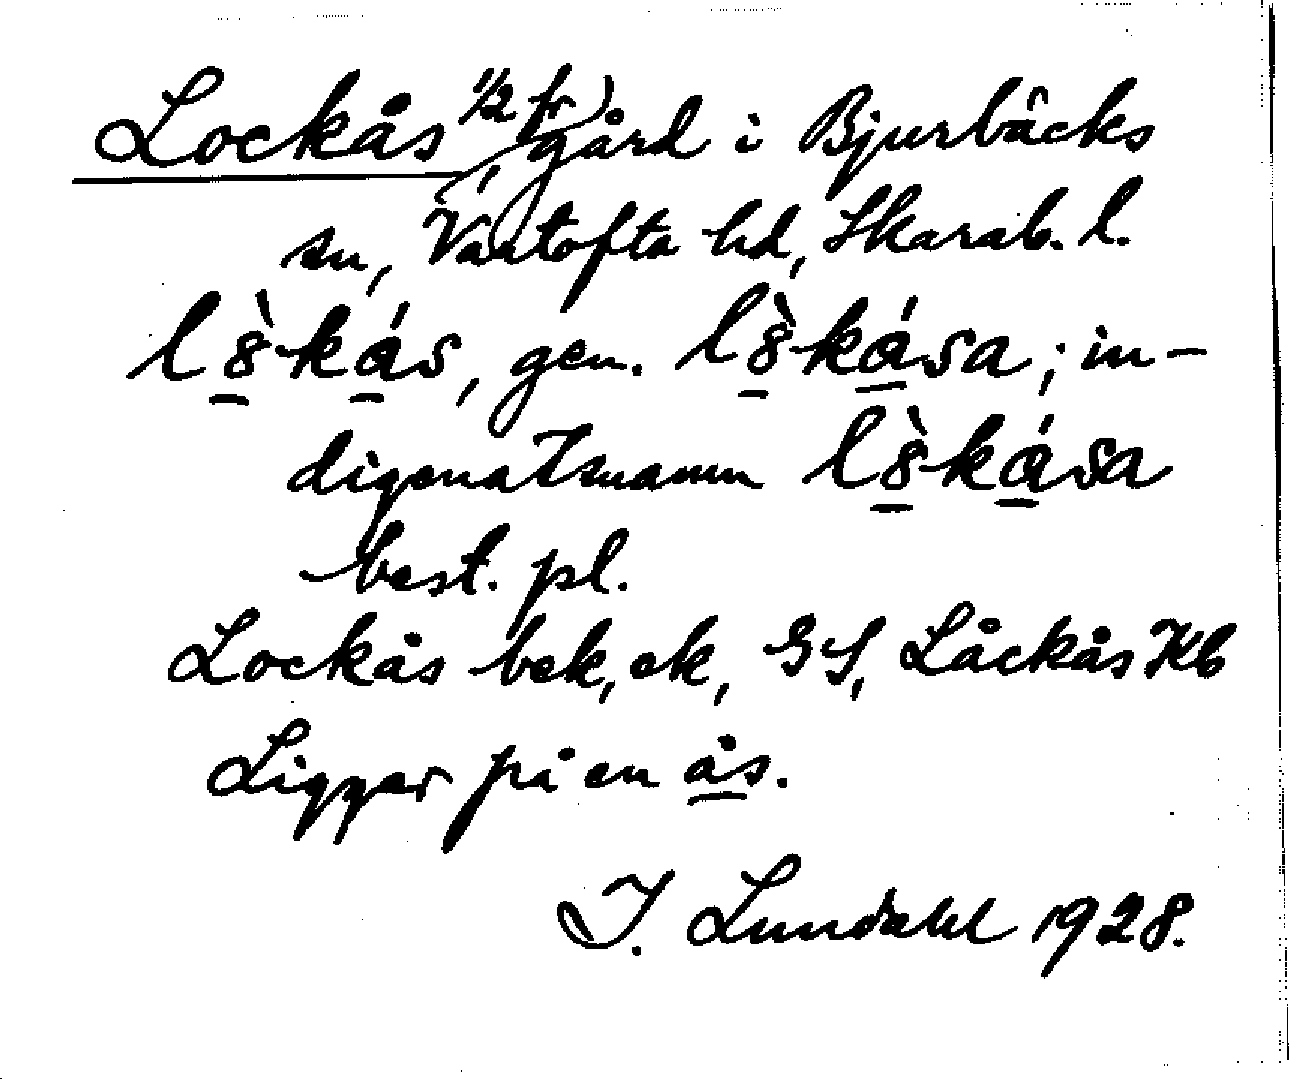 Lockås, 1/2 fr) gård i Bjurbäcks
sn, Vartofta hd, Skarab. l.
l8̠̀ká̠s, gen. l8̠̀ká̠sa; in-
digenatsnamn l8̠̀ká̠sa
best. pl.
Lockås bek, ek, GS, Låckås Kb
Ligger på en ås.
I. Lundahl 1928.